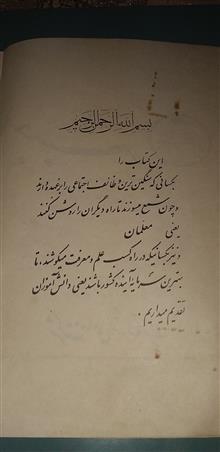 بسم الله الرحمن الرحیم
این کتاب را
بکسانی که سنگین ترین وظائف اجتماعی را بر عهده دارند
و چون شمع میسوزند تا راه دیگران را روشن کنند
یعنی معلمان
و نیز بکسانیکه در راه کسب علم و معرفت میکوشند، تا
بهترین سرمایه آینده کشور باشند یعنی دانش آموزان
تقدیم میداریم.